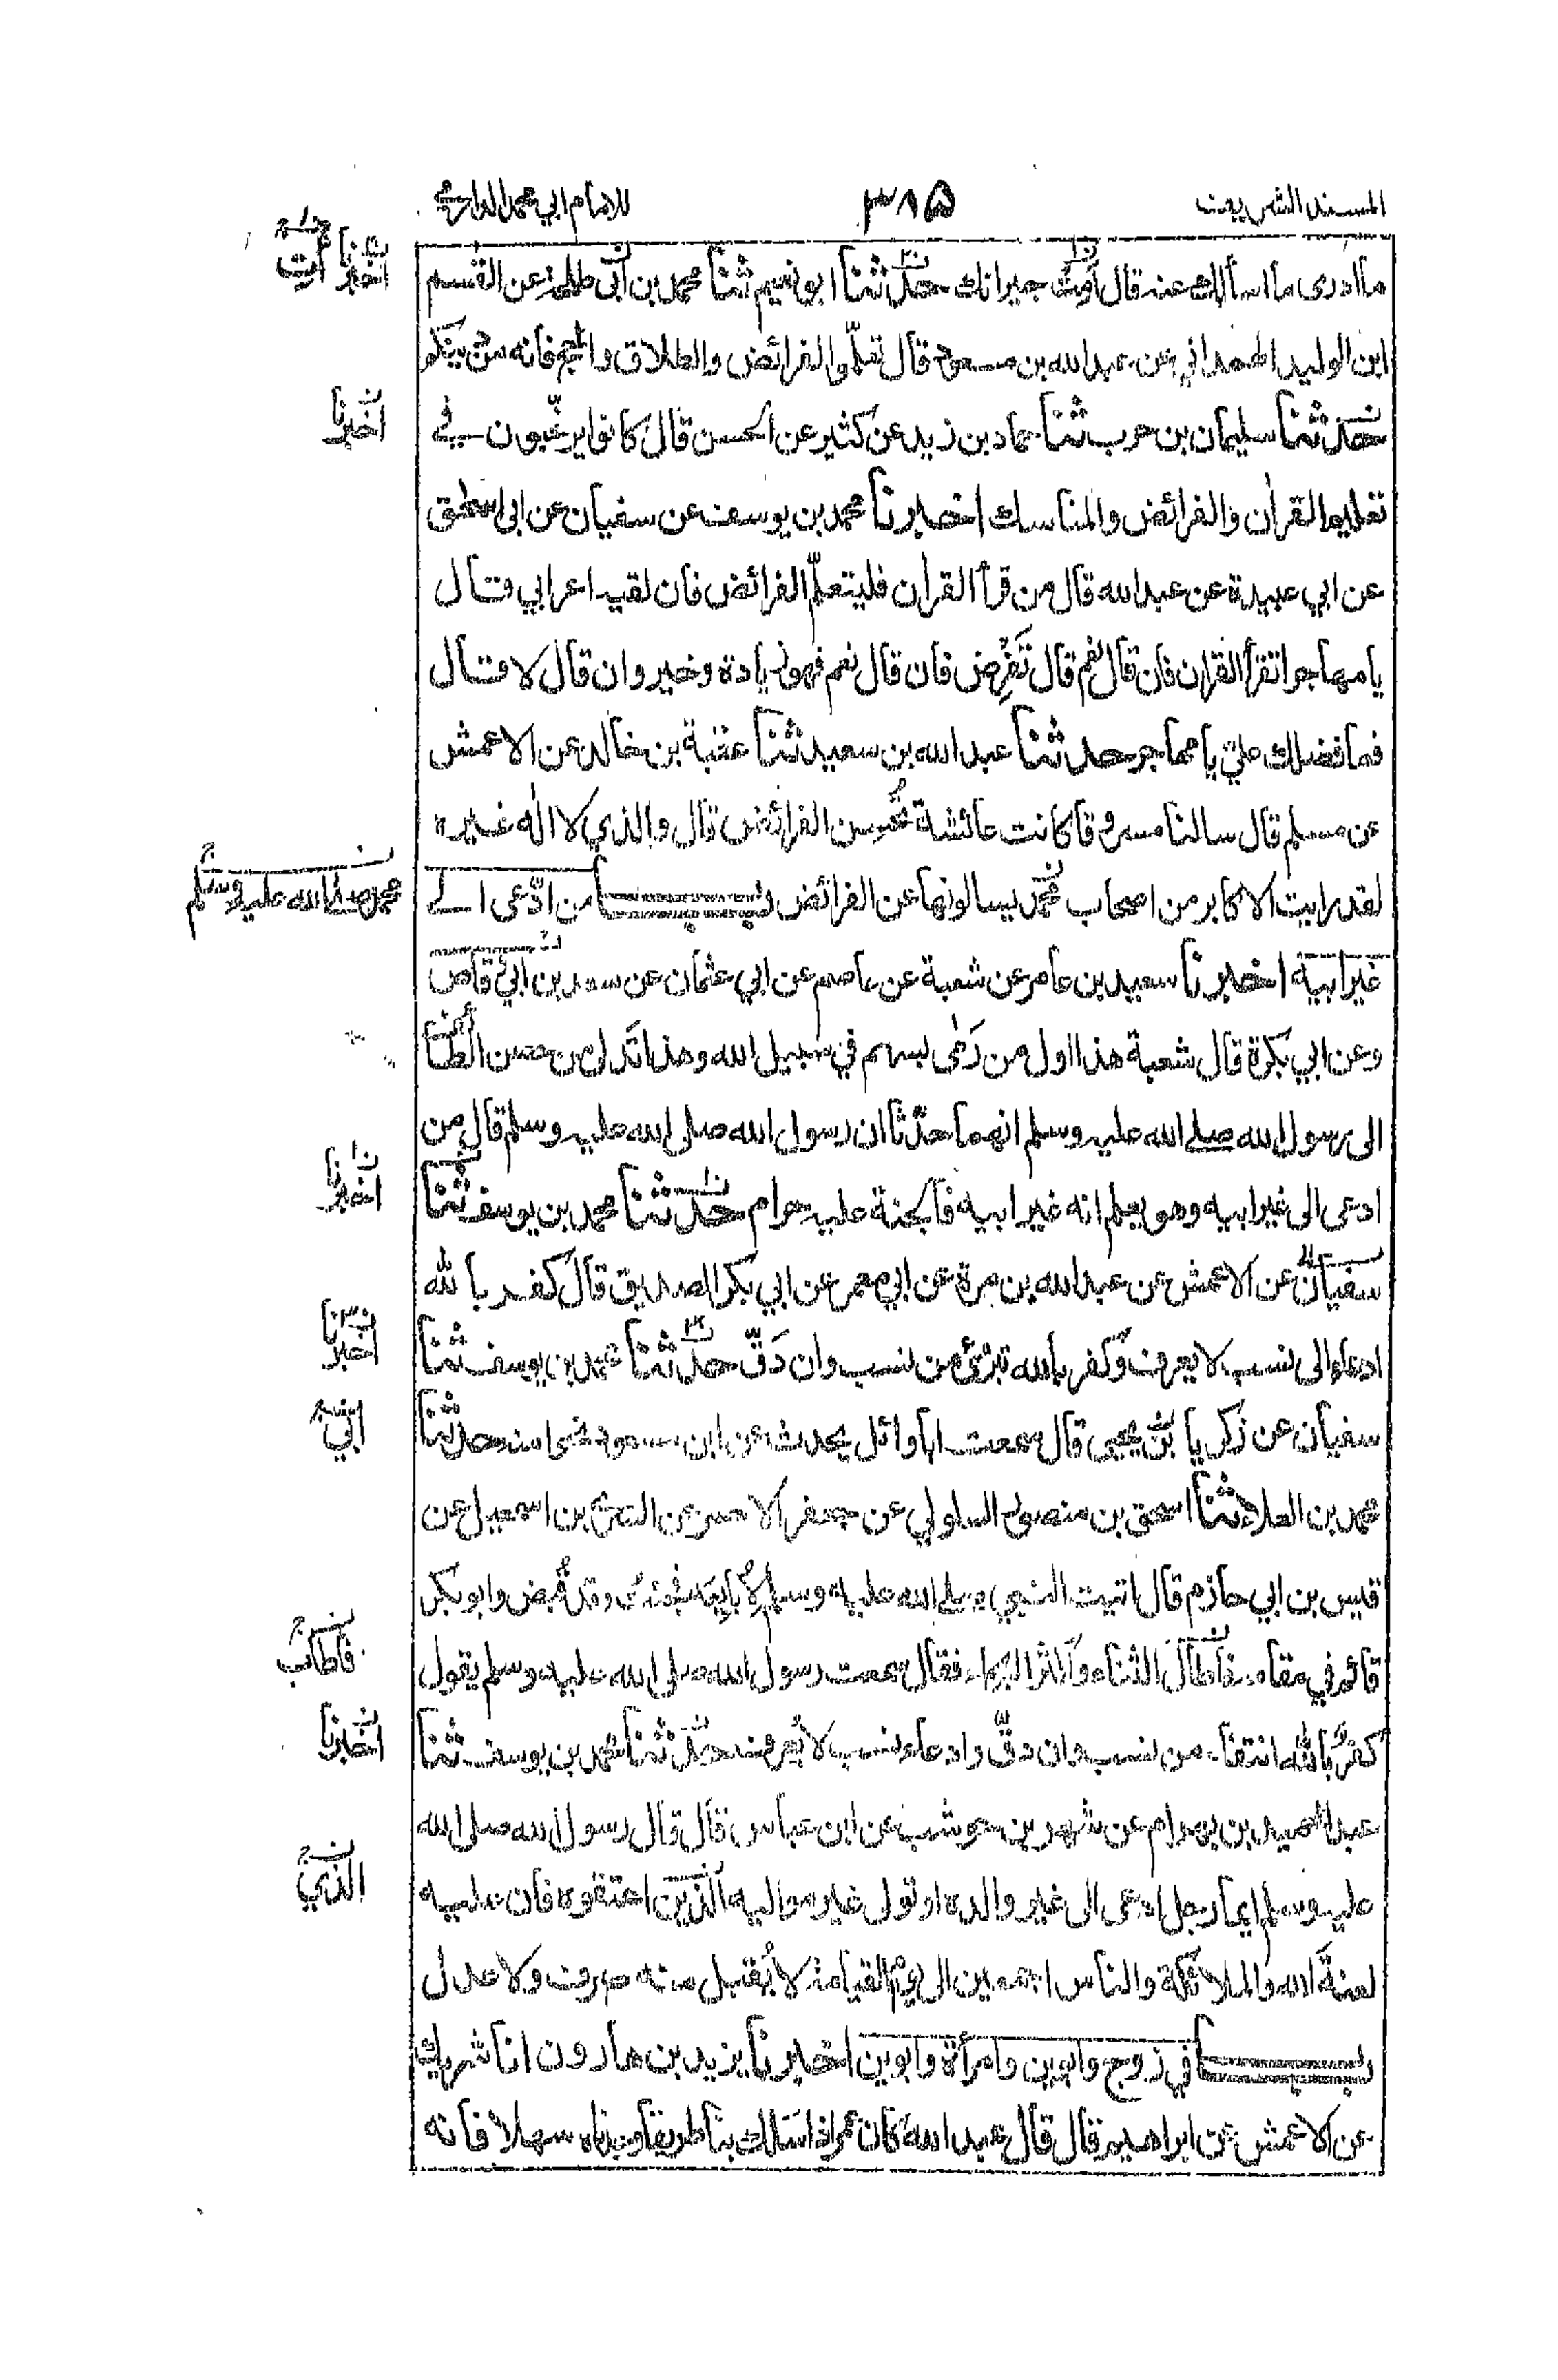 المسند الشريف ٣٨٥ للامام ابي محمد الدارمي
ما ادرى ما اسألك عنه قال أمت جيرانك حدثنا ابو نعيم ثنا محمد بن أبى طلحة عن القسم
ابن الوليد الهمداني عن عبد الله بن مسعود قال تعلموا الفرائض والطلاق والحج فانه من دينكم
حدثنا سليمان بن حرب ثنا حماد بن زيد عن كثير عن الحسن قال كانوا يرغبون في
تعليم القراٰن والفرائض والمناسك اخبرنا محمد بن يوسف عن سفيان عن ابى اسحٰق
عن ابي عبيدة عن عبد الله قال من قرأ القراٰن فليتعلّم الفرائض فان لقيه اعرابي قال
يا مهاجر اتقرأ القراٰن فان قال نعم قال تَفرِض فان قال نعم فهو زيادة وخير وان قال لا قال
فما فضلك عليّ يا مهاجر حدثنا عبد الله بن سعيد ثنا عقبة بن خالد عن الاعمش
عن مسلم قال سالنا مسروقا كانت عائشة تحسن الفرائض قال والذي لا الٰه غيره
لقد رايت الاكابر من اصحاب محمد يسالونها عن الفرائض باب من ادّعى الے
غير ابيه اخبرنا سعيد بن عامر عن شعبة عن عاصم عن ابي عثمان عن سعد بن ابي وقاص
وعن ابي بكرة قال شعبة هذا اول من رَمٰى بسهم في سبيل الله وهذا تدلى من حصن الطائف
الى رسول الله صلى الله عليه وسلم انهما حدّثا ان رسول الله صلى الله عليه وسلم قال من
ادعى الى غير ابيه وهو يعلم انه غير ابيه فالجنة عليه حرام حدثنا محمد بن يوسف ثنا
سفيان عن الاعمش عن عبد الله بن مرة عن ابي معمر عن ابي بكر الصديق قال كفر بالله
ادعاء الى نسب لا يعرف وكفر بالله تبرّئ من نسب وان دَقّ حدثنا محمد بن يوسف ثنا
سفيان عن زكريا بن يحيى قال سمعت ابا وائل يحدث عن ابن مسعود نحوا منه حدثنا
محمد بن العلاء ثنا اسحق بن منصور السلولي عن جعفر الاحمر عن السري بن اسمعيل عن
قيس بن ابي حازم قال اتيت النبي صلى الله عليه وسلم لأبايعه فجئت وقد قُبض وابو بكر
قائم في مقامه فاطال الثناء واكثر البكاء فقال سمعت رسول الله صلى الله عليه وسلم يقول
كفرٌ بالله انتفاء من نسب وان دقّ وادعاء نسب لا يُعرف حدثنا محمد بن يوسف ثنا
عبد الحميد بن بهرام عن شهر بن حوشب عن ابن عباس قال قال رسول الله صلى الله
عليه وسلم ايما رجل ادعى الى غير والده او تولى غير مواليه الّذين اعتقوه فان عليه
لعنةَ الله والملائكة والناس اجمعين الى يوم القيامة لا يُقبل منه صرف ولا عدل
باب في زوج وابوين وامرأة وابوين اخبرنا يزيد بن هارون انا شريك
عن الاعمش عن ابراهيم قال قال عبد الله كان عمر اذا سَلك بنا طريقا وجدناه سهلا فانه
اخبرنا
اخبرنا
محمد صلى الله عليه وسلم
اخبرنا
اخبرنا
ابي
فاطاب
اخبرنا
الذي